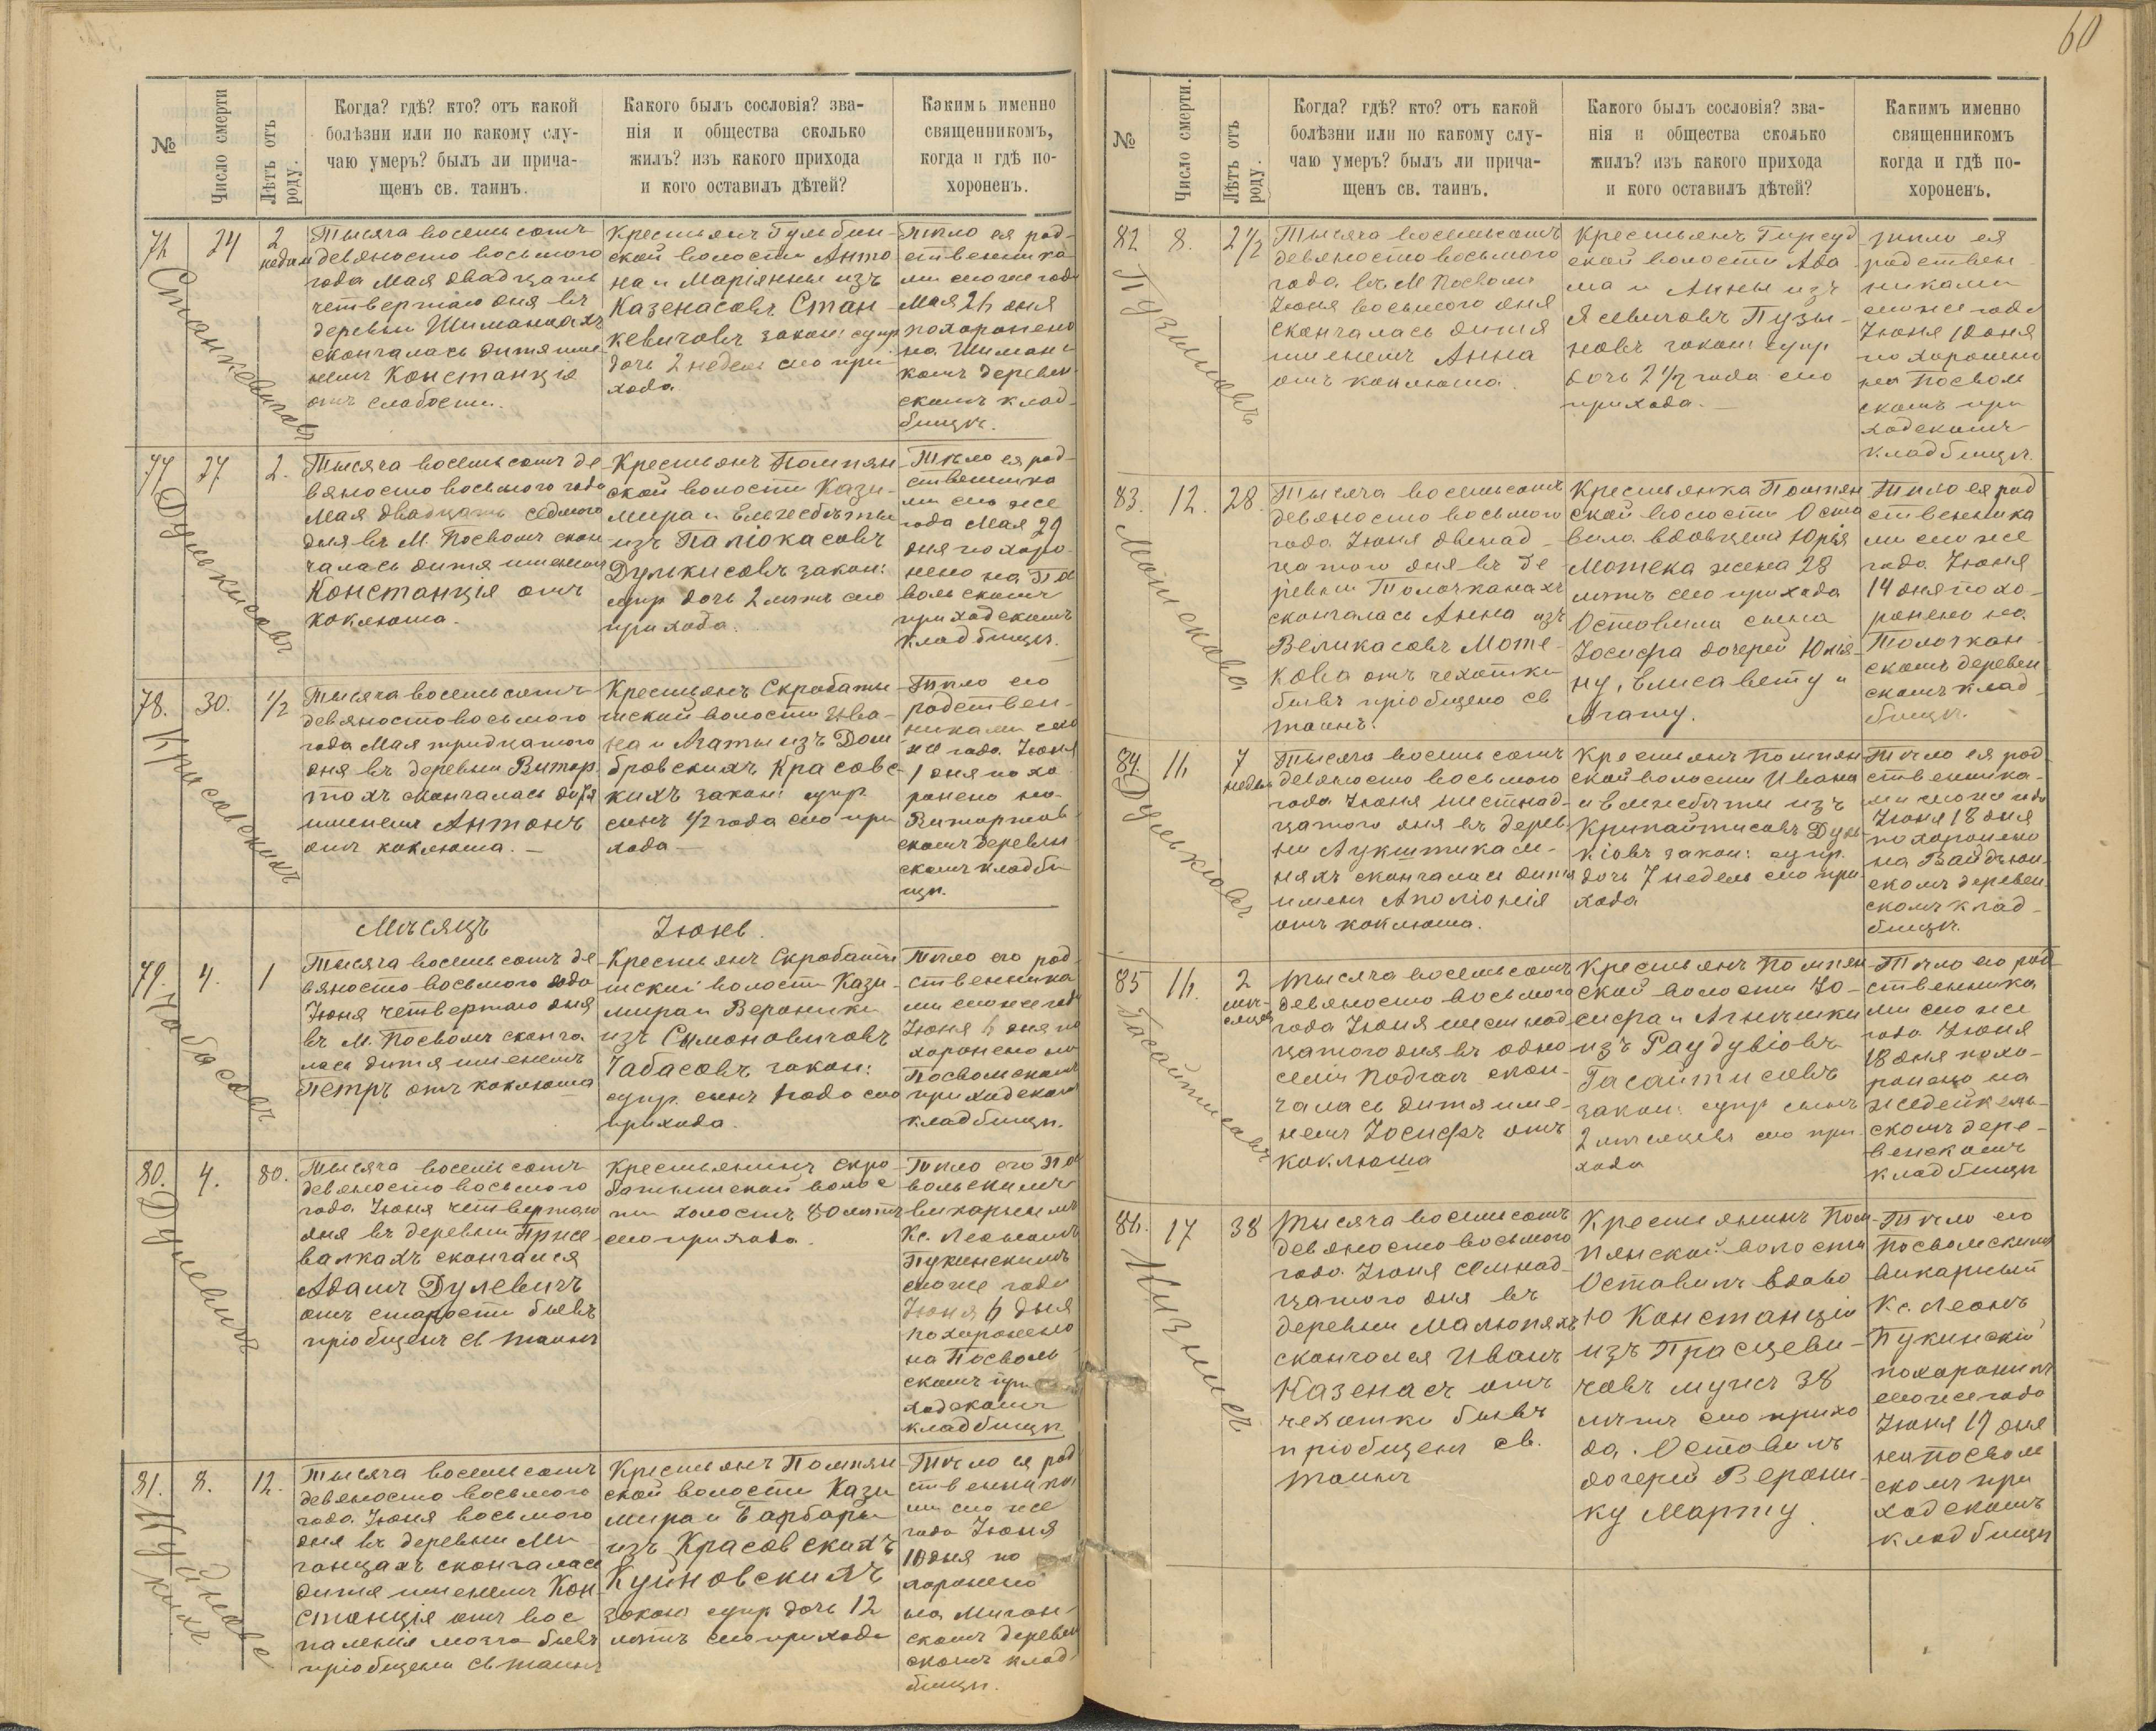 60
№
Число смерти
Лѣтъ отъ роду.
Когда? гдѣ? кто? отъ какой
болѣзни или по какому слу-
чаю умеръ? былъ ли прича-
щенъ св. таинъ.
Какого былъ сословія? зва-
нія и общества сколько
жилъ? изъ какого прихода
и кого оставилъ дѣтей?
Какимъ именно
священникомъ,
когда и гдѣ по-
хороненъ.
Станкевичовъ
24
2
недели
Тысяча восемьсотъ
девяносто восьмого
года Мая двадцать
четвертаго дня въ
деревни Шиманахъ
скончалась дитя име-
немъ Констанція
отъ слабости.
Крестьянъ Гумбин-
ской волости Анто
на и Маріянны изъ
Казенасовъ Стан
кевичовъ закон: супр
дочь 2 недели сего при
хода
Тѣло ея род-
ственника
ми сего же года
Мая 26 дня
похоронено
на Шиман-
комъ деревен
скомъ клад-
бищѣ.
77
27
2.
Думкисовъ
Тысяча восемьсотъ де
вяносто восьмого года
Мая двадцать седмого
дня въ М. Посволѣ скон
чалась дитя именемъ
Констанція отъ
коклюша.
Крестьянъ Помпян
ской волости Кази-
мира и Ельжбѣты
изъ Паліокасовъ
Думкисовъ закон:
супр дочь 2 лѣтъ сего
прихода.
Тѣло ея род-
ственника
ми сего же
года Мая 29
дня похоро-
нено на По
вольскомъ
приходскомъ
кладбищѣ.
78.
30.
1/2
Красовскихъ
Тысяча восемьсотъ
девяносто восьмого
года Мая тридцатого
дня въ деревни Витар
тахъ скончалась дитя
именемъ Антонъ
отъ коклюша. —
Крестьянъ Скробаты
шской волости Ива-
на и Агаты изъ Дом
бровскихъ Красовс-
кихъ закон: супр.
сынъ 1/2 года сего при
хода —
Тѣло его
родствен-
никами сего
же года Июня
1 дня похо
ронено на
Витартов-
скомъ деревен
скомъ кладби
щѣ.
Мѣсяцъ
Іюнь.
79.
4.
1
Габасовъ
Тысяча восемьсотъ де
вяносто восьмого года
Іюня четвертаго дня
въ М. Посволѣ сконча
лась дитя именемъ
Петръ отъ коклюша
Крестьянъ Скробаты
шской волости Кази-
мира и Вероники
изъ Симоновичовъ
Габасовъ закон:
супр. сынъ 1 года сего
прихода.
Тѣло его род
ственника
ми сего же года
Іюня 6 дня по
хоронено на
Посвольскомъ
приходском
кладбищѣ.
80.
4.
80.
Дулевичъ
Тысяча восемьсотъ
девяносто восьмого
года Іюня четвертаго
дня въ деревни Присе-
валкахъ скончался
Адамъ Дулевичъ
отъ старости бывъ
пріобщенъ св таинъ
Крестьянинъ Скро
батышской волос
ти холостъ 80 лѣтъ
сего прихода.
Тѣло его По
вольскимъ
викарнымъ
Кс. Леономъ
Пукинскимъ
сего же года
Іюня 6 дня
похоронено
на Посволь
скомъ при
ходскомъ
кладбищѣ
81.
8.
12.
Куйновс
кихъ
Тысяча восемьсотъ
девяносто восьмого
года Іюня восьмого
дня въ деревни Ми
ганцахъ скончалась
дитя именемъ Кон
станція отъ вос
паленія мозга бывъ
пріобщена св таинъ
Крестьянъ Помпян
ской волости Кази
мира и Барбары
изъ Красовскихъ
Куйновскихъ
закон супр дочь 12
лѣтъ сего прихода
Тѣло ея род
ственника
ми сего же
года Іюня
10 дня по
хоронено
на Миган-
скомъ деревен
скомъ клад-
бищѣ.
№
Число смерти.
Лѣтъ отъ роду.
Когда? гдѣ? кто? отъ какой
болѣзни или по какому слу-
чаю умеръ? былъ ли прича-
щенъ св. таинъ.
Какого былъ сословія? зва-
нія и общества сколько
жилъ? изъ какого прихода
и кого оставилъ дѣтей?
Какимъ именно
священникомъ
когда и гдѣ по-
хороненъ.
82
8.
2 1/2
Пузыновъ
Тысяча восемьсотъ
девяносто восьмого
года въ М Посволѣ
Іюня восьмого дня
скончалась дитя
именемъ Анна
отъ коклюша.
Крестьянъ Гирсуд
ской волости Ада
ма и Анны изъ
Ясевичовъ Пузы-
новъ закон супр
дочь 2 1/2 года сего
прихода. —
тѣло ея
родствен
никами
сего же года
Іюня 10 дня
похоронено
на Посвол
скомъ при
ходскомъ
кладбищѣ.
83.
12.
28.
Мотекова
Тысяча восемьсотъ
девяносто восьмого
года Іюня двенад-
цатого дня въ де
ревни Толочканахъ
скончалась Анна изъ
Великасовъ Моте-
кова отъ чехотки
бывъ пріобщено св
таинъ.
Крестьянка Помпян
ской волости Оста
вила вдовцемъ Юрія
Мотека жена 28
лѣтъ сего прихода
Оставила сына
Іосифа дочерей Юлія-
ну, Елисавету и
Агату.
Тѣло ея род
ственника
ми сего же
года Іюня
14 дня похо-
ронено на
Толочкан-
скомъ деревен
скомъ клад-
бищѣ.
84
16
7
недел
Думкіовъ
Тысяча восемьсотъ
девяносто восьмого
года Іюня шестнад-
цатого дня въ дерев
ни Аукштикал-
няхъ скончалась дитя
именемъ Аполіонія
отъ коклюша.
Крестьянъ Помпян
ской волости Ивана
и Ельжбѣты изъ
Крипайтисовъ Дум-
кіовъ закон: супр.
дочь 7 недель сего при
хода
Тѣло ея род
ственника-
ми сего же года
Іюня 18 дня
похоронено
на Вайдзюн
скомъ деревен.
скомъ клад-
бищѣ.
85
16.
2
мѣ-
сяцов
Гасайтисовъ
Тысяча восемьсотъ
девяносто восьмого
года Іюня шестнад
цатого дня въ одно
селіи Подгаи скон-
чалась дитя име-
немъ Іосифъ отъ
коклюша
Крестьянъ Помпян
ской волости Іо-
сифа и Агнѣшки
изъ Раудувіовъ
Гасайтисовъ
закон: супр сынъ
2 мѣсяцевъ сего при
хода
Тѣло его род
ственника
ми сего же
года Іюня
18 дня похо-
ронено на
скомъ дере-
венскомъ
кладбищѣ
86.
17
38
Тысяча восемьсотъ
девяносто восьмого
года Іюня семнад-
цатого дня въ
деревни Малюпяхъ
скончался Иванъ
Казенасъ отъ
чехотки бывъ
пріобщенъ св.
таинъ
Крестьянинъ Пом
пянской волости
Оставилъ вдово
ю Констанцію
изъ Прасцеви-
човъ мужъ 38
лѣтъ сего прихо
да. Оставилъ
дочерей Верони-
ку Марту.
Тѣло его
Посвольскимъ
викарный
Кс. Леонъ
Пукинскій
похоронилъ
сего же года
Іюня 19 дня
на Посвол
скомъ при
ходскомъ
кладбищѣ